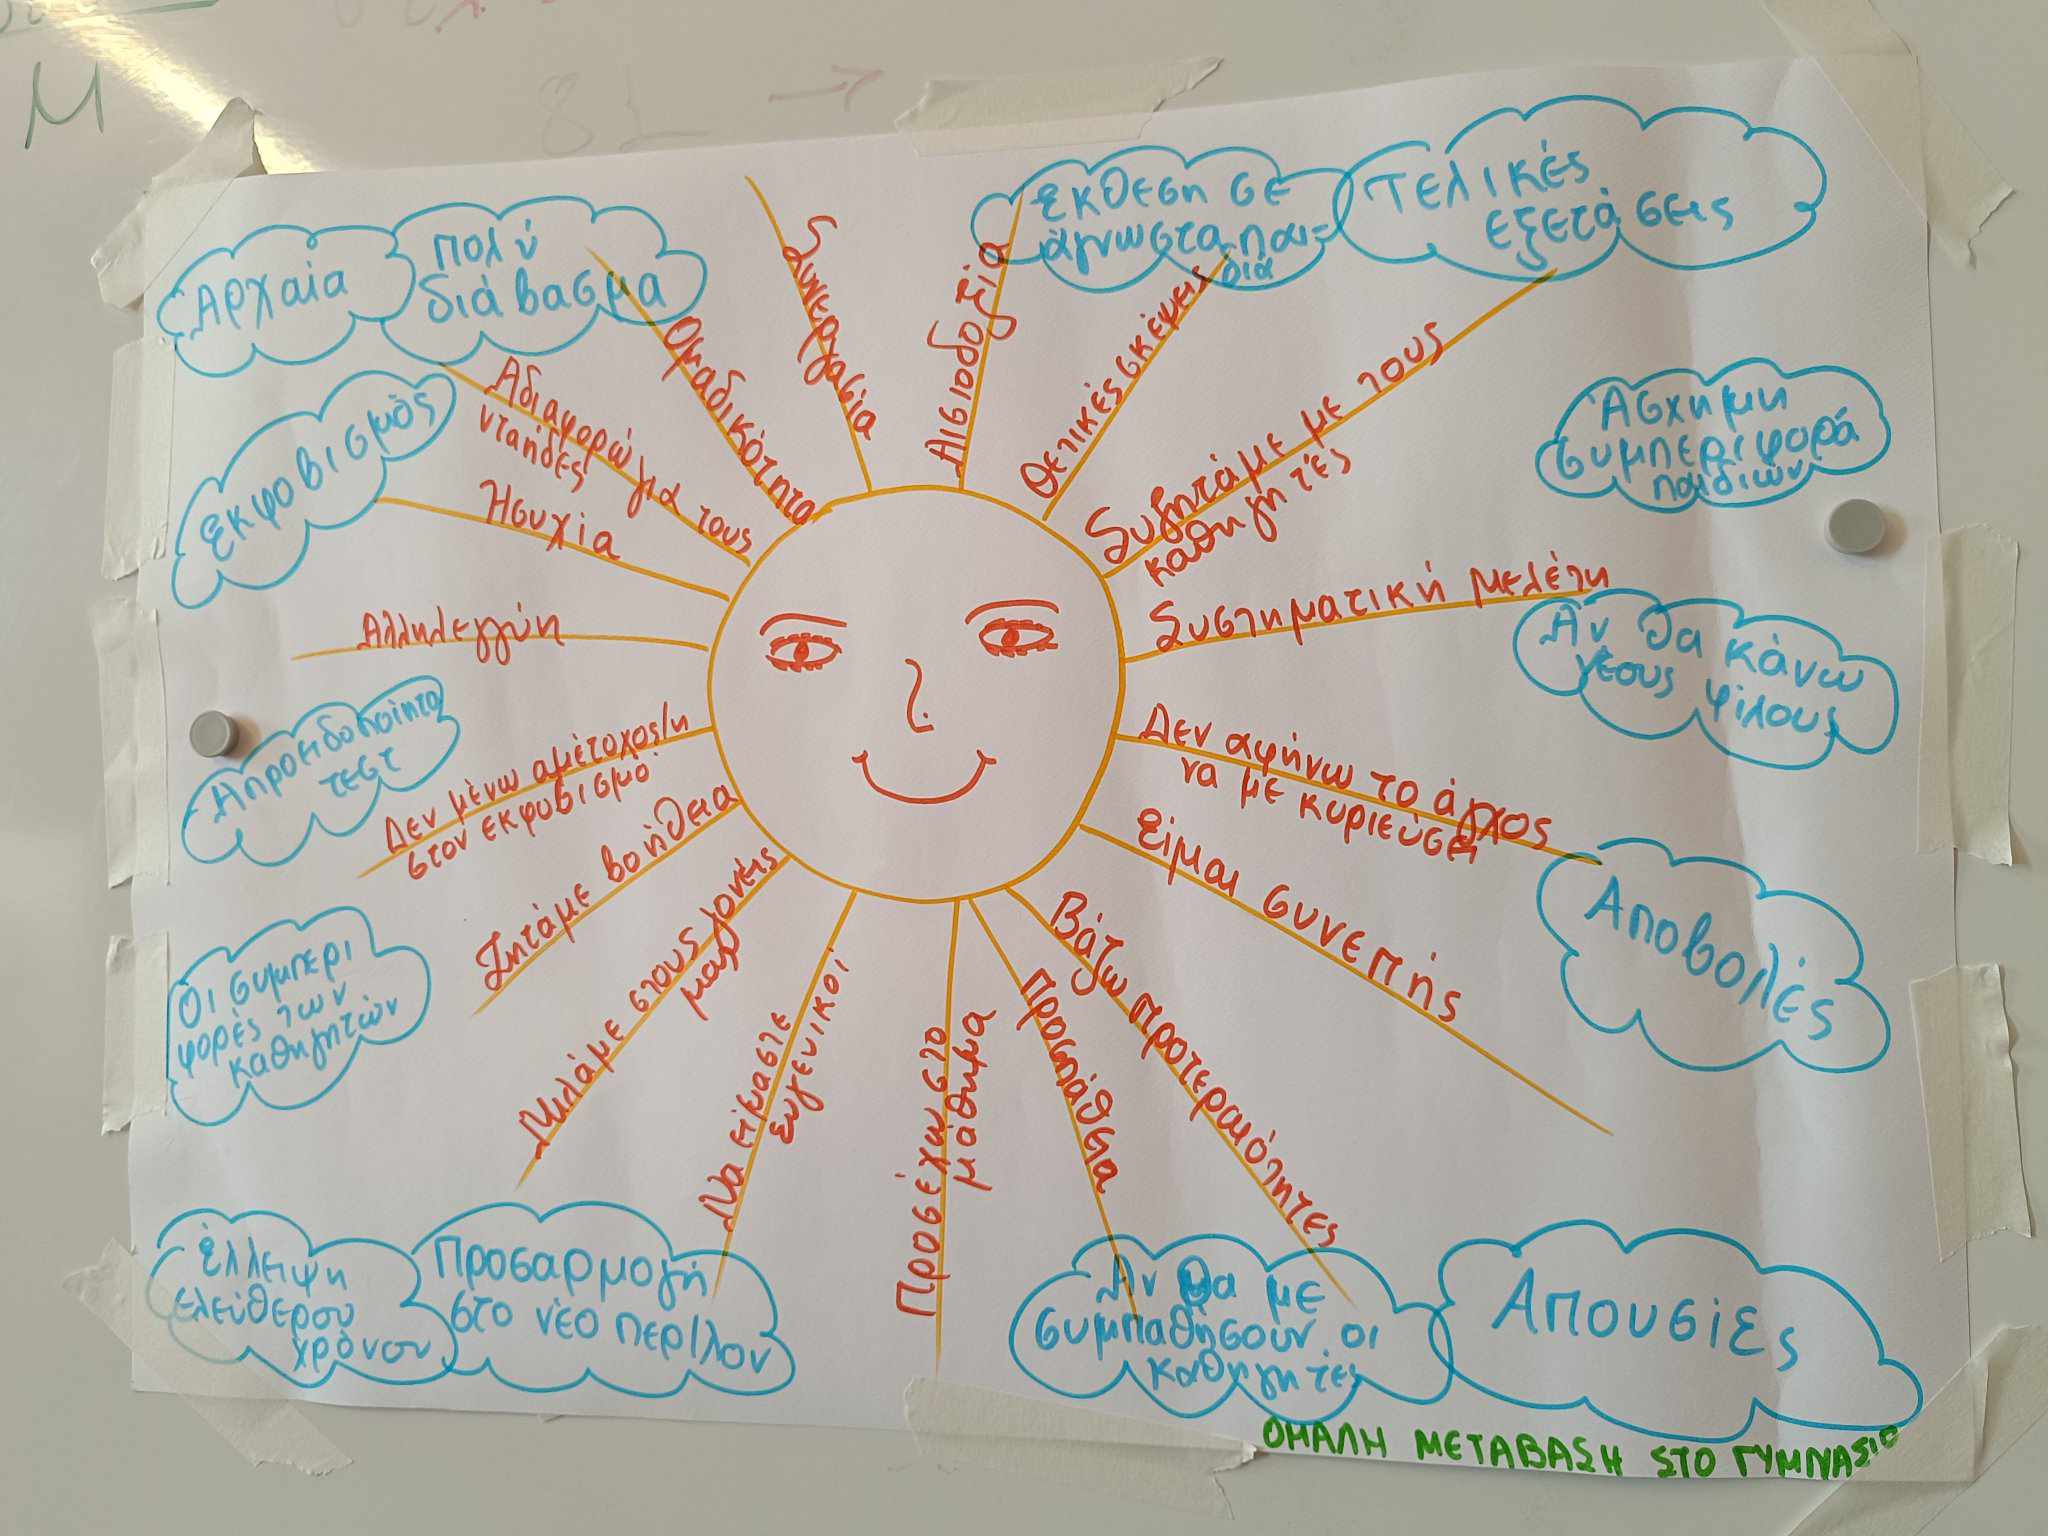 Μ
81 →
Αρχαία
πολύ
διάβασμα
Συνεργασία
Αισιοδοξία
Έκθεση σε
άγνωστα παι=
διά
Τελικές
εξετάσεις
Εκφοβισμός
Αδιαφορώ για τους
νταήδες
Ομαδικότητα
Θετικές σκέψεις
Συζητάμε με τους
καθηγητές
Άσχημη
συμπεριφορά
παιδιών
Ησυχία
Αλληλεγγύη
Συστηματική μελέτη
Αν θα κάνω
νέους φίλους
Απροειδοποίητα
τεστ
Δεν μένω αμέτοχος/η
στον εκφοβισμό
Δεν αφήνω το άγχος
να με κυριεύσει
Ζητάμε βοήθεια
Είμαι συνεπής
Αποβολές
Οι συμπερι
φορές των
καθηγητών
Μιλάμε στους γονείς
μας
Να είμαστε
ευγενικοί
Προσέχω στο
μάθημα
Προσπάθεια
Βάζω προτεραιότητες
Έλλειψη
ελεύθερου
χρόνου
Προσαρμογή
στο νέο περ/λον
Αν θα με
συμπαθήσουν οι
καθηγητές
Απουσίες
ΟΜΑΛΗ ΜΕΤΑΒΑΣΗ ΣΤΟ ΓΥΜΝΑΣΙΟ